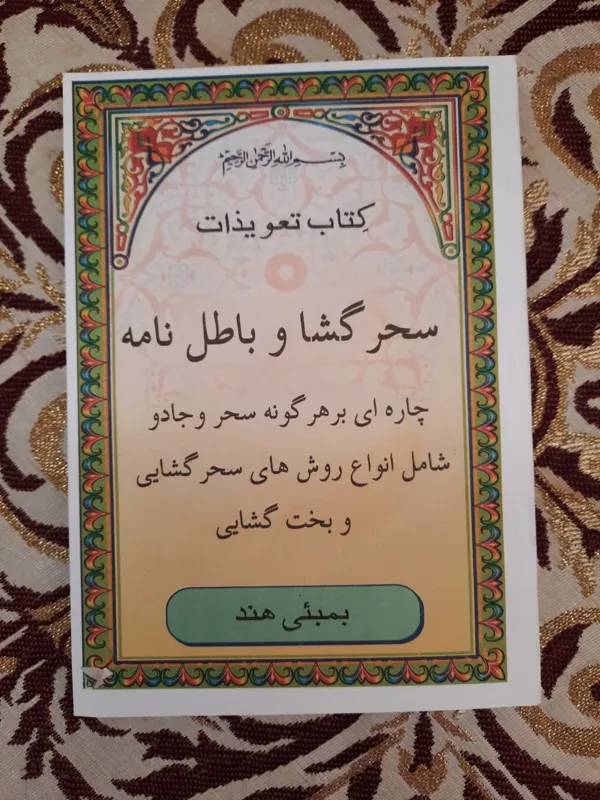 بسم الله الرحمن الرحیم
کِتاب تعویذات
سحر گشا و باطل نامه
چاره ای بر هر گونه سحر و جادو
شامل انواع روش های سحر گشایی
و بخت گشایی
بمبئی هند